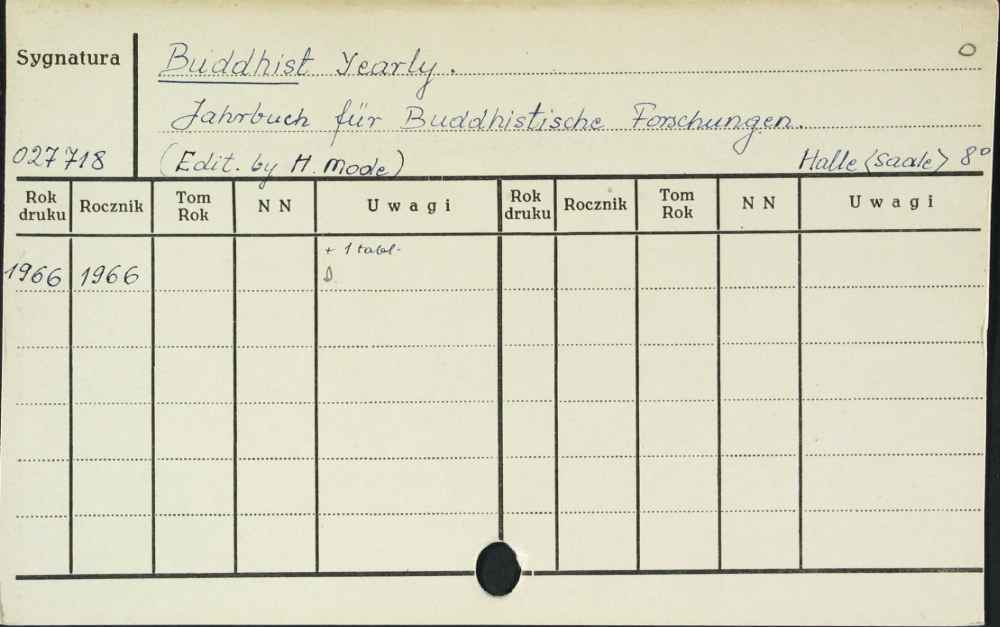 Sygnatura
Buddhist Yearly. 0
Jahrbuch für Buddhistische Forschungen.
027718 (Edit. by H. Mode) Halle <Saale> 8°
Rok druku Rocznik Tom Rok N N Uwagi Rok druku Rocznik Tom Rok N N Uwagi
+ 1 tabl.
1966 1966 D.